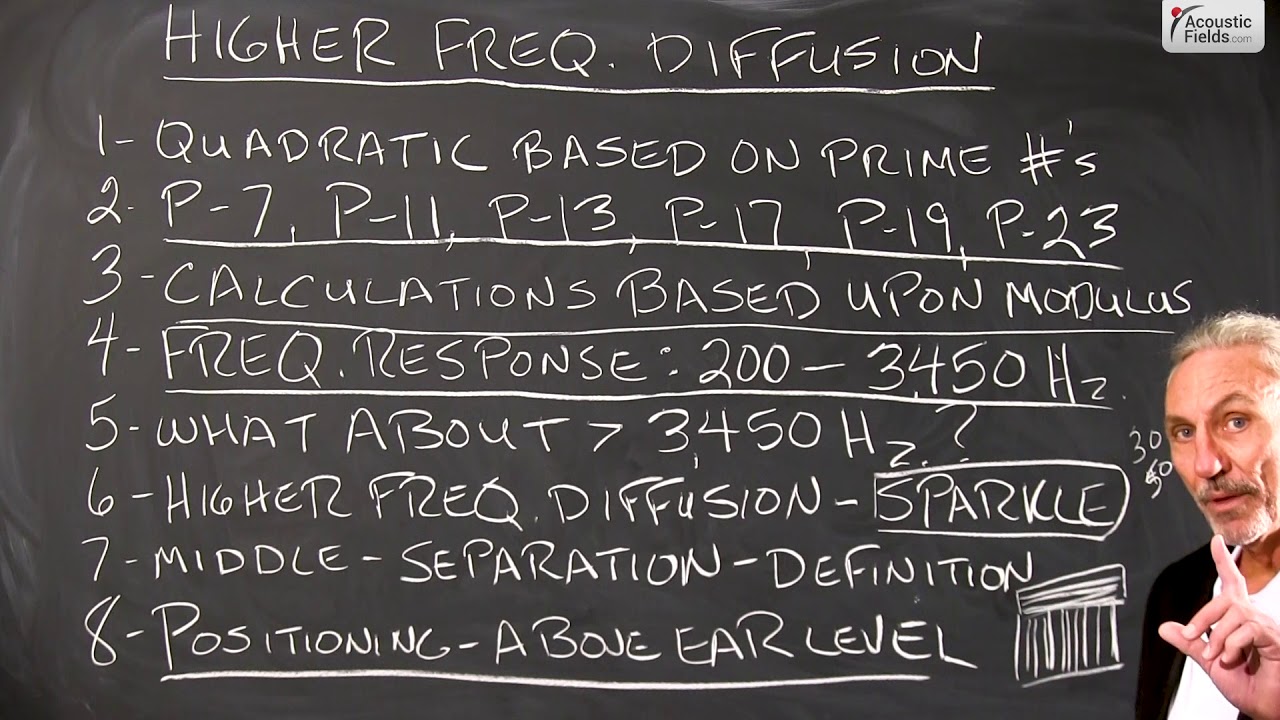 Acoustic
Fields.com
HIGHER FREQ. DIFFUSION
1- QUADRATIC BASED ON PRIME #'s
2- P-7, P-11, P-13, P-17, P-19, P-23
3- CALCULATIONS BASED UPON MODULUS
4- FREQ. RESPONSE: 200 - 3,450 Hz.
5- WHAT ABOUT > 3,450 Hz.?
6- HIGHER FREQ. DIFFUSION - SPARKLE
7- MIDDLE - SEPARATION - DEFINITION
8- POSITIONING - ABOVE EAR LEVEL
30